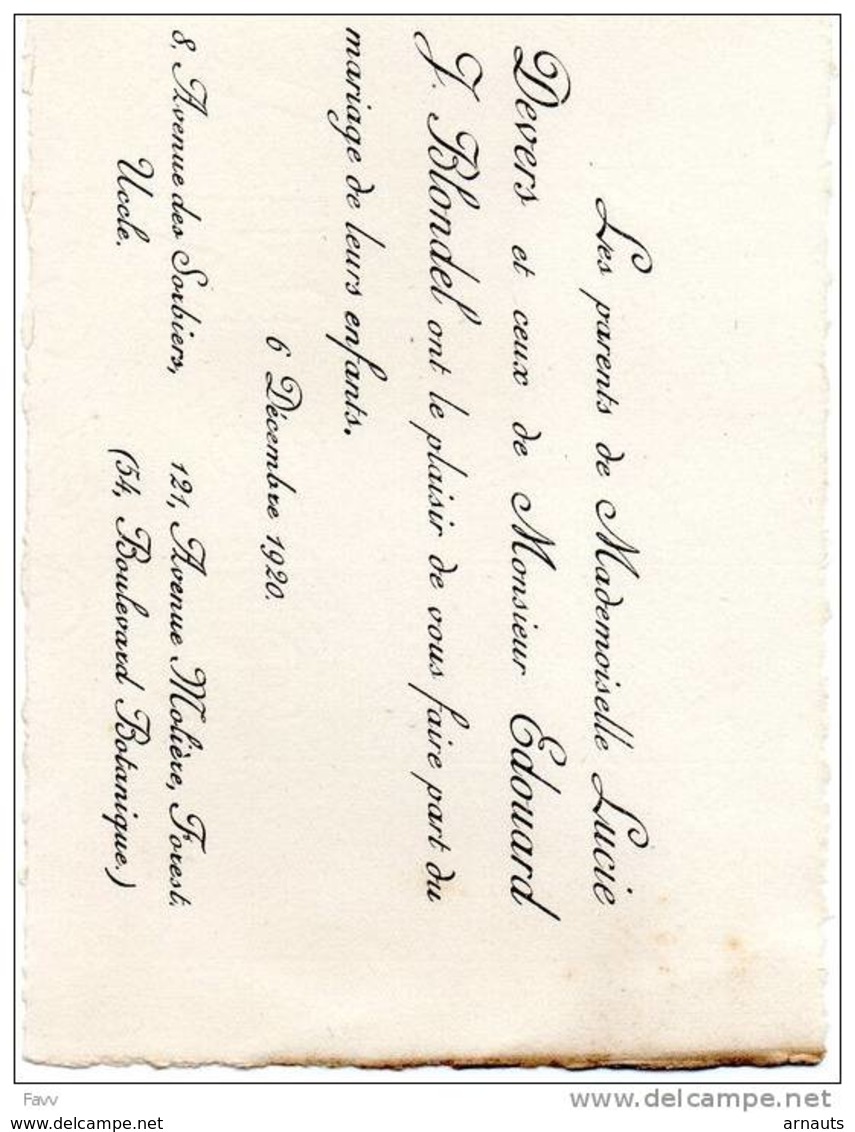 Les parents de Mademoiselle Lucie
Devers et ceux de Monsieur Edouard
J. Blondel ont le plaisir de vous faire part du
mariage de leurs enfants.
6 Décembre 1920.
8, Avenue des Sorbiers,
Uccle.
121, Avenue Molière, Forest.
(54, Boulevard Botanique.)
Favv
www.delcampe.net
www.delcampe.net
arnauts